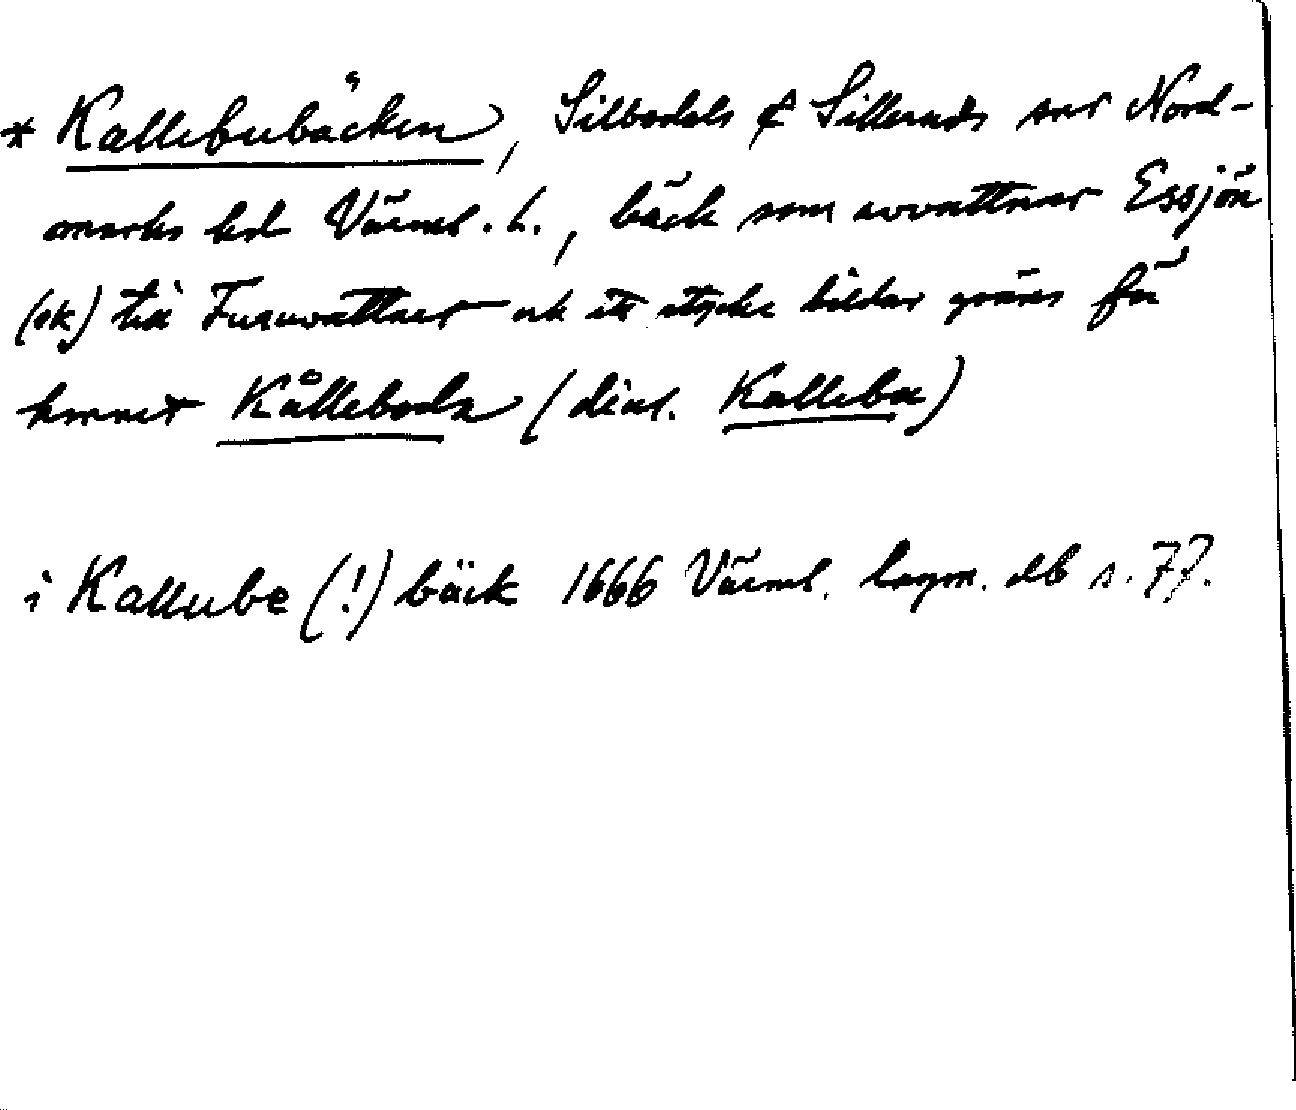 * Kallebubäcken, Silbodals & Silleruds snr Nord-
marks hd Värml. l., bäck som avvattnar Essjön
(ek) till Furuvattnet och ett stycke bildar gräns för
hmnet Kålleboda (dial. Kallebu)
i Kallube (!) bäck 1666 Värml. lagm. db s. 77.